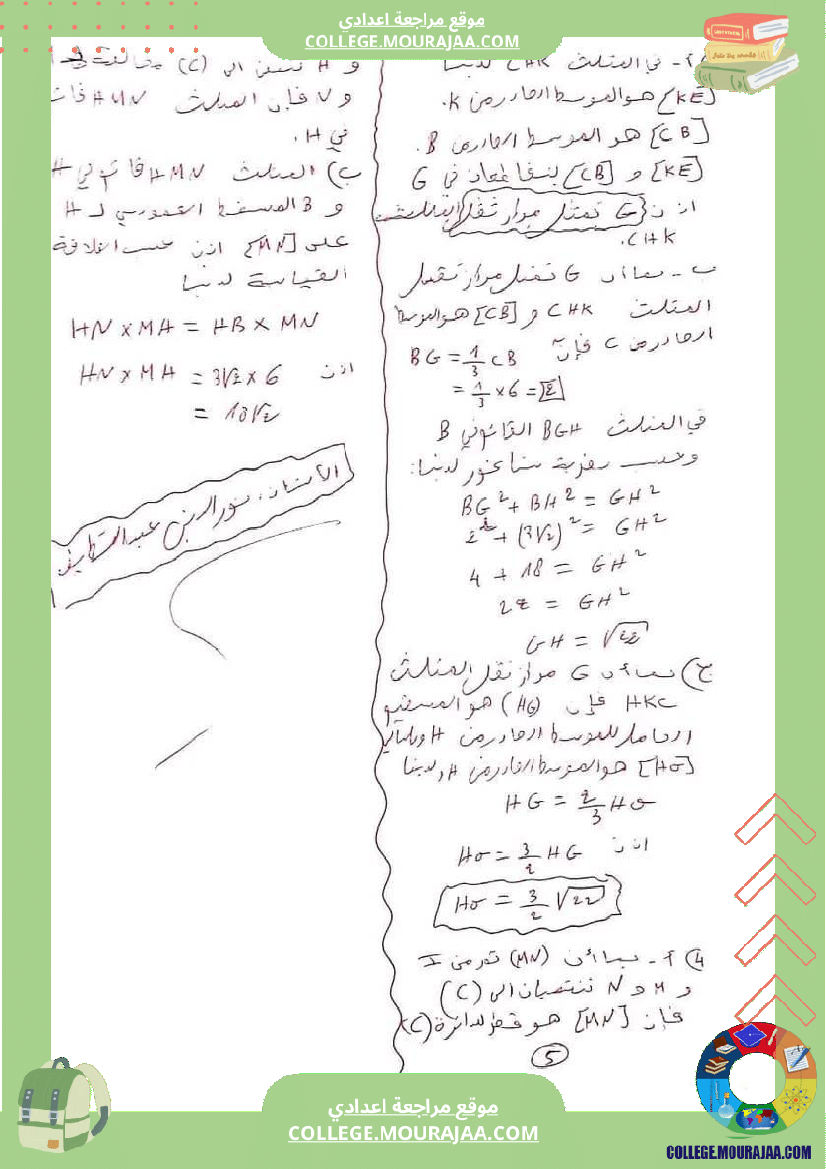 موقع مراجعة اعدادي
COLLEGE.MOURAJAA.COM
أ - في المثلث CHK لدينا
[KE] هو الموسط الصادر من K.
[CB] هو الموسط الصادر من B.
[KE] و [CB] يتقاطعان في G
اذن G تمثل مركز ثقل المثلث
CHK.
ب - بما أن G تمثل مركز ثقل
المثلث CHK و [CB] هو الموسط
الصادر من C فإن
BG = 1/3 CB
= 1/3 × 6 = 2
في المثلث BGH القائم في B
وحسب نظرية بيتاغور لدينا:
BG² + BH² = GH²
2² + (3√2)² = GH²
4 + 18 = GH²
22 = GH²
GH = √22
ج) بما أن G مركز ثقل المثلث
HKC فإن (HG) هو المستقيم
الحامل للموسط الصادر من H وبالتالي
[HO] هو الموسط الصادر من H ولدينا
HG = 2/3 HO
اذن HO = 3/2 HG
HO = 3/2 √22
4) أ - بما أن (MN) تمر من I
و M و N تنتميان الى (C)
فإن [MN] هو قطر للدائرة (C)
5
و H تنتمي الى (C)
و N فإن المثلث HMN قائم
في H.
ب) المثلث HMN قائم في H
و B المسقط العمودي لـ H
على [MN] اذن حسب العلاقة
القياسية لدينا
HN × MH = HB × MN
اذن HN × MH = 3√2 × 6
= 18√2
الأستاذ: نور الدين عبد
موقع مراجعة اعدادي
COLLEGE.MOURAJAA.COM
COLLEGE.MOURAJAA.COM